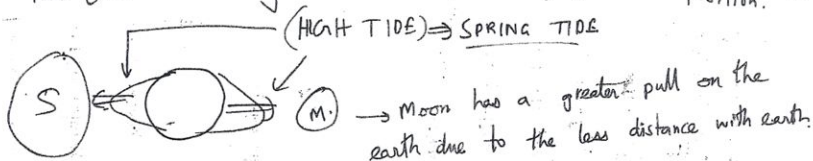 (HIGH TIDE) ⇒ SPRING TIDE
S
M.
→ Moon has a greater pull on the
earth due to the less distance with earth.